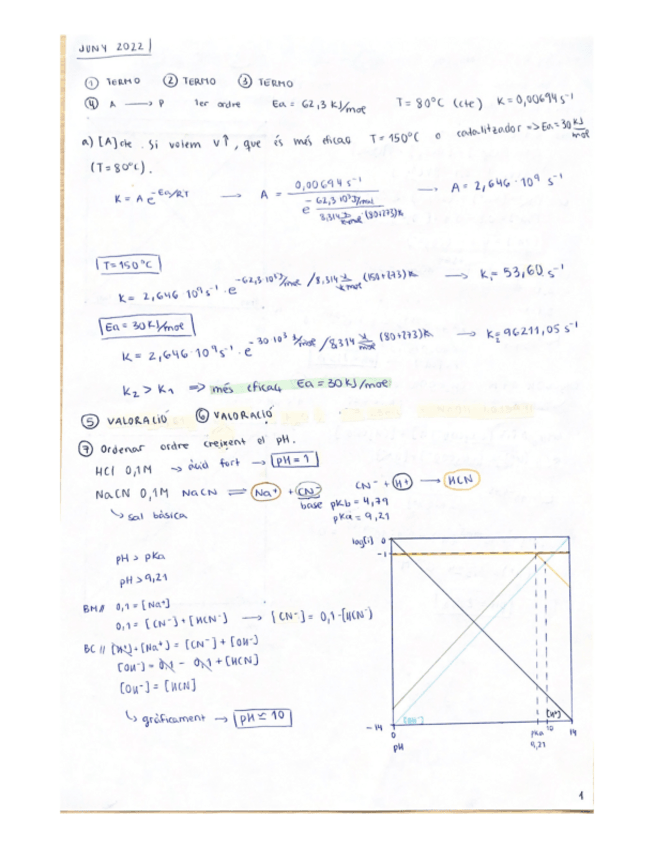 JUNY 2022
① TERMO ② TERMO ③ TERMO
④ A → P 1er ordre Ea = 62,3 KJ/mol T = 80°C (cte) K = 0,00694 s⁻¹
a) [A] cte. Si volem v↑, que és més eficaç T = 150°C o catalitzador => Ea = 30 KJ/mol
(T = 80°C).
K = A e^-Ea/RT → A = 0,00694 s⁻¹ / e^(-62,3 10³ J/mol / 8,314 (80+273)K) → A = 2,646 · 10⁹ s⁻¹
T = 150°C
K = 2,646 10⁹ s⁻¹ · e^(-62,3 10³ J/mol / 8,314 (150+273)K) → K₁ = 53,60 s⁻¹
Ea = 30 KJ/mol
K = 2,646 · 10⁹ s⁻¹ · e^(-30 10³ J/mol / 8314 (80+273)K) → K₂ = 96211,05 s⁻¹
K₂ > K₁ => més eficaç Ea = 30 KJ/mol
⑤ VALORACIÓ ⑥ VALORACIÓ
⑦ Ordenar ordre creixent el pH.
HCl 0,1M → àcid fort → pH = 1
NaCN 0,1M NaCN ⇌ Na⁺ + CN⁻ CN⁻ + H⁺ → HCN
↳ sal bàsica base pKb = 4,79
pKa = 9,21
pH > pKa
pH > 9,21
BM // 0,1 = [Na⁺]
0,1 = [CN⁻] + [HCN⁻] → [CN⁻] = 0,1 - [HCN⁻)
BC // [H⁺] + [Na⁺] = [CN⁻] + [OH⁻]
[OH⁻] = 0,1 - 0,1 + [HCN]
[OH⁻] = [HCN]
↳ gràficament → pH ≃ 10
log[i] 0
-1
-14
[OH⁻] [H⁺]
0 pKa 10 14
pH 9,21
1